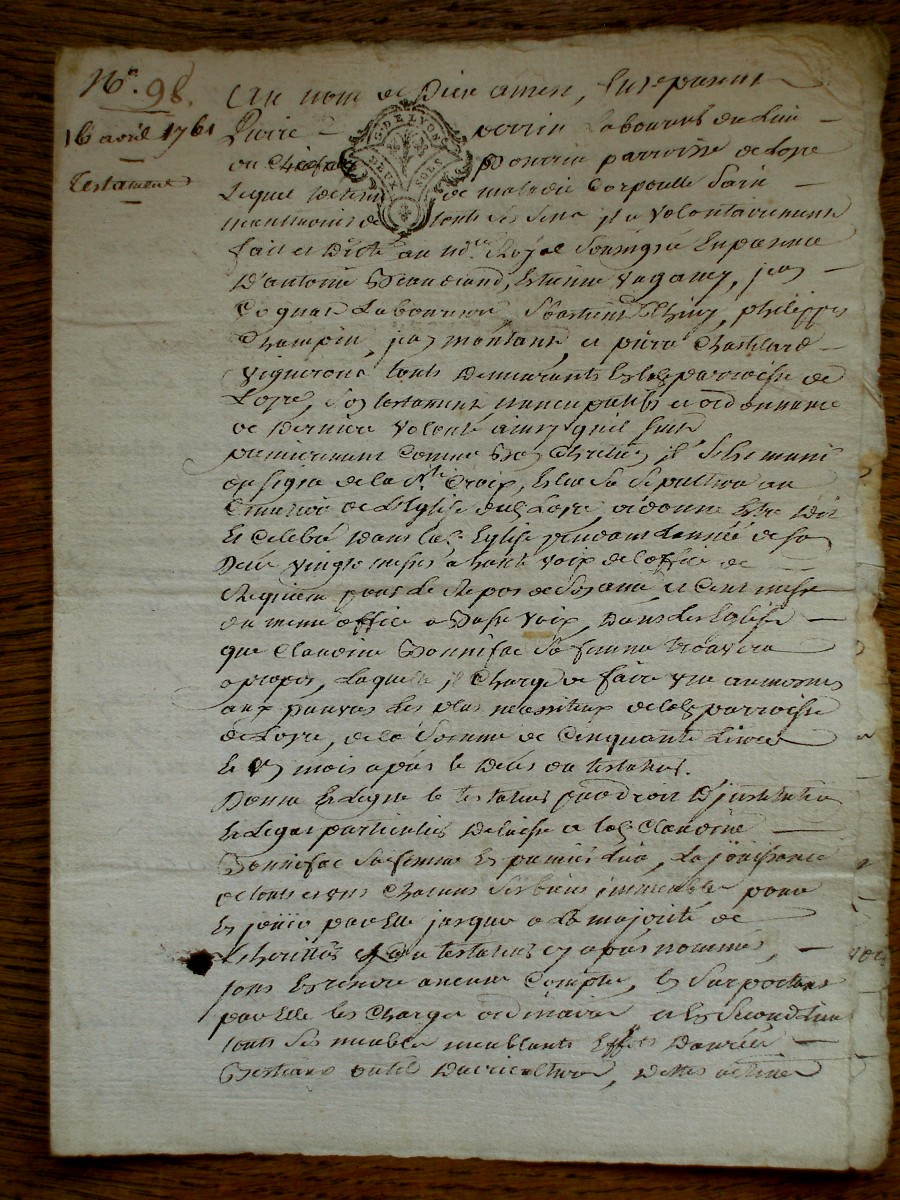 N°. 98.
16 avril 1761
Testament
G. DE LYON
DEUX SOLS
Au nom de Dieu amen, fut present
Pierre perrin Laboureur du Lieu
du parroisse de Loyre
Lequel de maladie Corporelle Sain
de touts ses Sens il a volontairement
fait et Dicté au no.re Royal Soussigné En presence
D'antoine Estienne Vaganey, jean
Cognat Laboureur, Sbastien philippes
Champin, jean montant, et pierre Chastelard
vignerons touts Demeurants En lad. parroisse de
Loyre, Son testament nuncupatif et ordonnance
de Derniere volonté ainsy quil suit
premierement Comme Bon Chretien il s'est muni
du signe de la Ste Croix, Eslu Sa Sepulture au
Cimetiere de L'Eglise dud. Loyre, ordonne Estre Dit
Et Celebré Dans lad. Eglise pendant l'année de son
Deces vingt messes a haute voix de l'office de
Requiem pour Le Repos de Son ame, et Cent messes
du meme office a Basse voix, Dans les Eglises
que Claudine Bonnifac Sa femme trouvera
a propos, Laquelle il Charge de faire une aumosne
aux pauvres Les plus necessiteux de lad. parroisse
de Loyre, de la Somme de Cinquante Livres
Et mois apres le Deces du testateur.
Donne Et Legue le testateur par droit D'institution
Et Legat particulier Delaisse a lad. Claudine
Bonnifac Sa femme En premier Lieu, La joüissance
de touts et uns Chacuns Ses biens immeubles pour
En joüir par Elle jusques a La majorité de
L'heritier du testateur cy apres nommé,
sans En rendre aucune Compte, En Suportant
par Elle les Charges ordinaires et En Second Lieu
touts Ses meubles meublants Effets Danrées
Bestiaux outils D'agriculture, Dettes actives